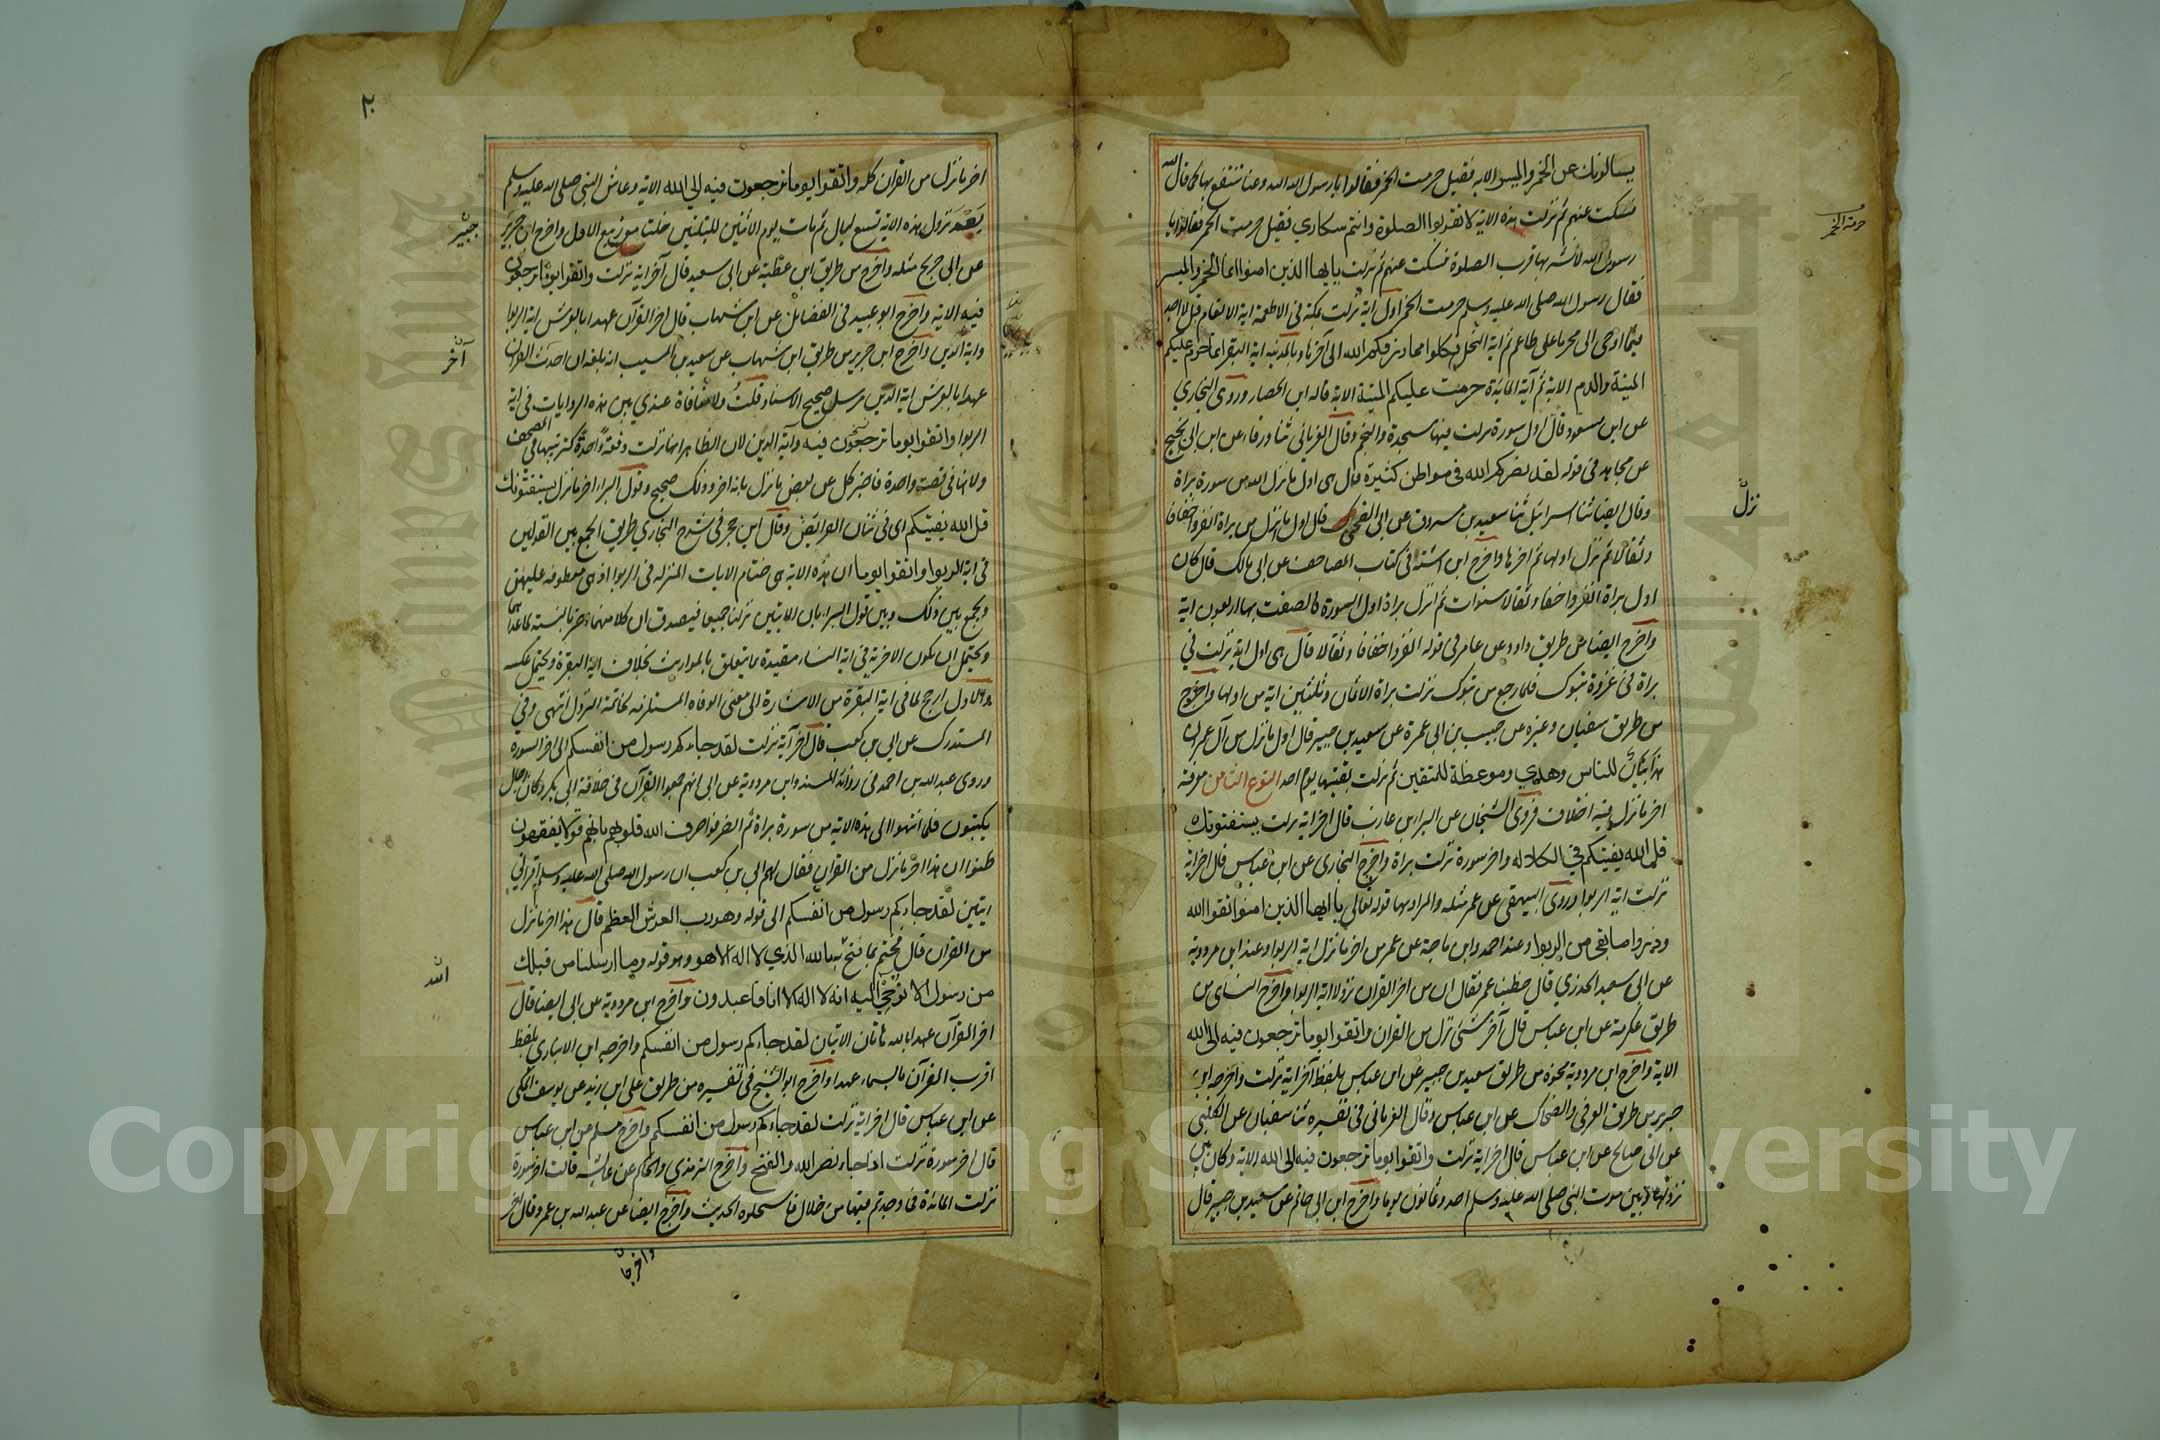 يسالونك عن الخمر والميسر الاية فقيل حرمت الخمر فقالوا يا رسول الله دعنا ننتفع بها كما قال الله
فسكت عنهم ثم نزلت هذه الاية لا تقربوا الصلوة وانتم سكاري فقيل حرمت الخمر فقالوا يا
رسول الله لا نشربها قرب الصلوة فسكت عنهم ثم نزلت يايها الذين امنوا انما الخمر والميسر
فقال رسول الله صلى الله عليه وسلم حرمت الخمر اول اية نزلت بمكة في الاطعمة اية الانعام قل لا اجد
فيما اوحى الى محرما على طاعم ثم اية النحل فكلوا مما رزقكم الله الى آخرها وبالمدينة اية البقرة انما حرم عليكم
الميتة والدم الاية ثم آية المائدة حرمت عليكم الميتة الاية قاله ابن الحصار وروى البخاري
عن ابن مسعود قال اول سورة نزلت فيها سجدة والنجم وقال الفريابي ثنا ورقاء عن ابن ابي نجيح
عن مجاهد في قوله لقد نصركم الله في مواطن كثيرة قال هي اول ما نزل الله من سورة براة
وقال ايضا ثنا اسرائيل ثنا سعيد بن مسروق عن ابى الضحى قال اول ما نزل من براة انفروا خفافا
وثقالا ثم نزل اولها ثم اخرها واخرج ابن اشتة في كتاب المصاحف عن ابى مالك قال كان
اول براة انفروا خفافا وثقالا سنوات ثم انزل براة اول السورة فالصفت بها اربعون اية
واخرج ايضا من طريق داود عن عامر في قوله انفروا خفافا وثقالا قال هى اول اية نزلت في
براة في غزوة تبوك فلما رجع من تبوك نزلت براة الا ثمان وثلثين اية من اولها واخرج
من طريق سفيان وغيره عن حبيب بن ابى عمرة عن سعيد بن جبير قال اول ما نزل من آل عمران
هذا بيان للناس وهدي وموعظة للمتقين ثم نزلت بقيتها يوم احد النوع الثامن معرفة
اخر ما نزل فيه اختلاف فروى الشيخان عن البراء بن عازب قال اخر اية نزلت يستفتونك
قل الله يفتيكم في الكلالة واخر سورة نزلت براة واخرج البخارى عن ابن عباس قال اخر اية
نزلت اية الربوا وروى البيهقى عن عمر مثله والمراد بها قوله تعالى يا ايها الذين امنوا اتقوا الله
وذروا ما بقى من الربوا وعند احمد وابن ماجة عن عمر من اخر ما نزل اية الربوا وعند ابن مردوية
عن ابى سعيد الخدري قال خطبنا عمر فقال ان من اخر القران نزولا اية الربوا واخرج النساى من
طريق عكرمة عن ابن عباس قال آخر شئ نزل من القران واتقوا يوما ترجعون فيه الى الله
الاية واخرج ابن مردوية نحوه من طريق سعيد بن جبير عن ابن عباس بلفظ آخر اية نزلت واخرجه ابن
جرير من طريق العوفى والضحاك عن ابن عباس وقال الفريابى في تفسيره ثنا سفيان عن الكلبى
عن ابى صالح عن ابن عباس قال اخر اية نزلت واتقوا يوما ترجعون فيه الى الله الاية وكان بين
نزولها وبين موت النبى صلى الله عليه وسلم احد وثمانون يوما واخرج ابن ابى حاتم عن سعيد بن جبير قال
حرمة الخمر
نزل
٢٠
اخر ما نزل من القران كله واتقوا يوما ترجعون فيه الى الله الاية وعاش النبى صلى الله عليه وسلم
بعد نزول هذه الاية تسع ليال ثم مات يوم الاثنين لليلتين خلتا من ربيع الاول واخرج ابن جرير
عن ابى جريج مثله واخرج من طريق ابن عطية عن ابى سعيد قال آخر اية نزلت واتقوا يوما ترجعون
فيه الاية واخرج ابو عبيد في الفضائل عن ابن شهاب قال اخر القرآن عهدا بالعرش اية الربوا
واية الدين واخرج ابن جرير من طريق ابن شهاب عن سعيد بن المسيب انه بلغه ان احدث القران
عهدا بالعرش اية الدين مرسل صحيح الاسناد قلت ولا منافاة عندي بين هذه الروايات في اية
الربوا واتقوا يوما ترجعون فيه وآية الدين لان الظاهر انها نزلت دفعة واحدة كترتيبها في المصحف
ولانها في قصة واحدة فاخبر كل عن بعض ما نزل بانه اخر وذلك صحيح وقول البراء اخر ما نزل يستفتونك
قل الله يفتيكم اى في شان الفرائض وقال ابن حجر في شرح البخاري طريق الجمع بين القولين
في اية الربوا واتقوا يوما ان هذه الاية هى ختام الايات المنزلة في الربوا اذ هى معطوفة عليهن
ويجمع بين ذلك وبين قول البراء بان الايتين نزلتا جميعا فيصدق ان كلا منهما اخر بالنسبة لما عداهما
ويحتمل ان تكون الاخرية في اية النساء مقيدة بما يتعلق بالمواريث بخلاف اية البقرة ويحتمل عكسه
والاول ارجح لما في اية البقرة من الاشارة الى معنى الوفاة المستلزمة لخاتمة النزول انتهى وفي
المستدرك عن ابي بن كعب قال آخر آية نزلت لقد جاءكم رسول من انفسكم الى اخر السورة
وروى عبد الله بن احمد في زوائد المسند وابن مردوية عن ابى انهم جمعوا القرآن في خلافة ابى بكر وكان رجال
يكتبون فلما انتهوا الى هذه الاية من سورة براة ثم انصرفوا صرف الله قلوبهم بانهم قوم لا يفقهون
ظنوا ان هذا اخر ما نزل من القران فقال لهم ابي بن كعب ان رسول الله صلى الله عليه وسلم اقراني
ايتين لقد جاءكم رسول من انفسكم الى قوله وهو رب العرش العظيم قال هذا اخر ما نزل
من القران قال فختم بما فتح به بالله الذي لا اله الا هو وهو قوله وما ارسلنا من قبلك
من رسول الا نوحي اليه انه لا اله الا انا فاعبدون واخرج ابن مردوية عن ابى ايضا قال
اخر القرآن عهدا بالله هاتان الايتان لقد جاءكم رسول من انفسكم واخرجه ابن الانباري بلفظ
اقرب القرآن بالسماء عهدا واخرج ابو الشيخ في تفسيره من طريق على ابن زيد عن يوسف المكى
عن ابن عباس قال اخر اية نزلت لقد جاءكم رسول من انفسكم واخرج مسلم عن ابن عباس
قال اخر سورة نزلت اذا جاء نصر الله والفتح واخرج الترمذي والحاكم عن عائشة قالت اخر سورة
نزلت المائدة فما وجدتم فيها من حلال فاستحلوه الحديث واخرج ايضا عن عبد الله بن عمرو قال اخر
جبير
آخر
الله
واخرجا
Copyright © King Saud University